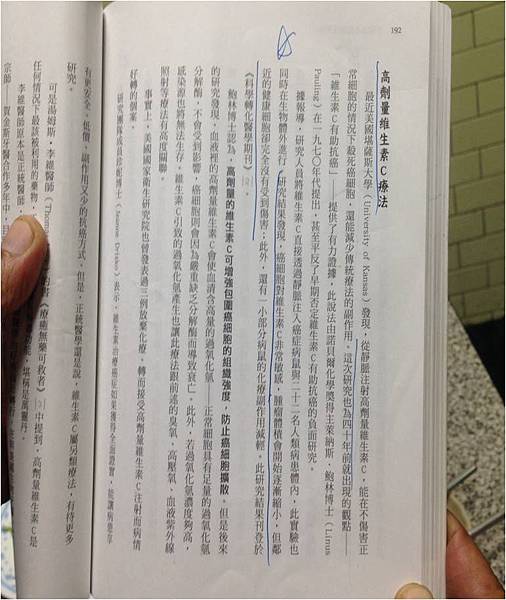 192
高劑量維生素C療法
最近美國堪薩斯大學（University of Kansas）發現，從靜脈注射高劑量維生素C，能在不傷害正
常細胞的情況下殺死癌細胞，還能減少傳統療法的副作用。這次研究也為四十年前就出現的觀點——
「維生素C有助抗癌」——提供了有力證據，此說法由諾貝爾化學獎得主萊納斯．鮑林博士（Linus
Pauling）在一九七〇年代提出，甚至平反了早期否定維生素C有助抗癌的負面研究。
據報導，研究人員將維生素C直接透過靜脈注入癌症病鼠與二十二名人類病患體內，此實驗也
同時在生物體外進行，研究結果發現，癌細胞對維生素C非常敏感，腫瘤體積會開始逐漸縮小，但鄰
近的健康細胞卻完全沒有受到傷害；此外，還有一小部分病鼠的化療副作用減輕，此研究結果刊登於
《科學轉化醫學期刊》
鮑林博士認為，高劑量的維生素C可增強包圍癌細胞的組織強度，防止癌細胞擴散。但是後來
的研究發現，血液裡的高劑量維生素C會使血清含高量的過氧化氫——正常細胞具有足量的過氧化氫
分解酶，不會受到影響，癌細胞則會因為嚴重缺乏分解酶而導致衰亡。此外，若過氧化氫濃度夠高，
感染源也將無法生存。維生素C引致的過氧化氫產生也讓此療法跟前述的臭氧、高壓氧、血液紫外線
照射等療法有高度關聯。
事實上，美國國家衛生研究院也曾發表過三例放棄化療、轉而接受高劑量維生素C注射而病情
好轉的個案。
研究團隊成員珍妮博士 表示，維生素治療癌症如果獲得全面證實，能讓病患享
有更安全、低價、副作用又少的抗癌方式。但是，正統醫學還是說，維生素C屬另類療法，有待更多
研究。
可是湯姆斯．李維醫師 《療癒無藥可救者》 中提到，高劑量維生素C是
任何情況下最該被利用的藥物， 堪稱是萬靈丹。
李維醫師原本是正統醫師，
宗師 賀金斯牙醫合作多年中，目